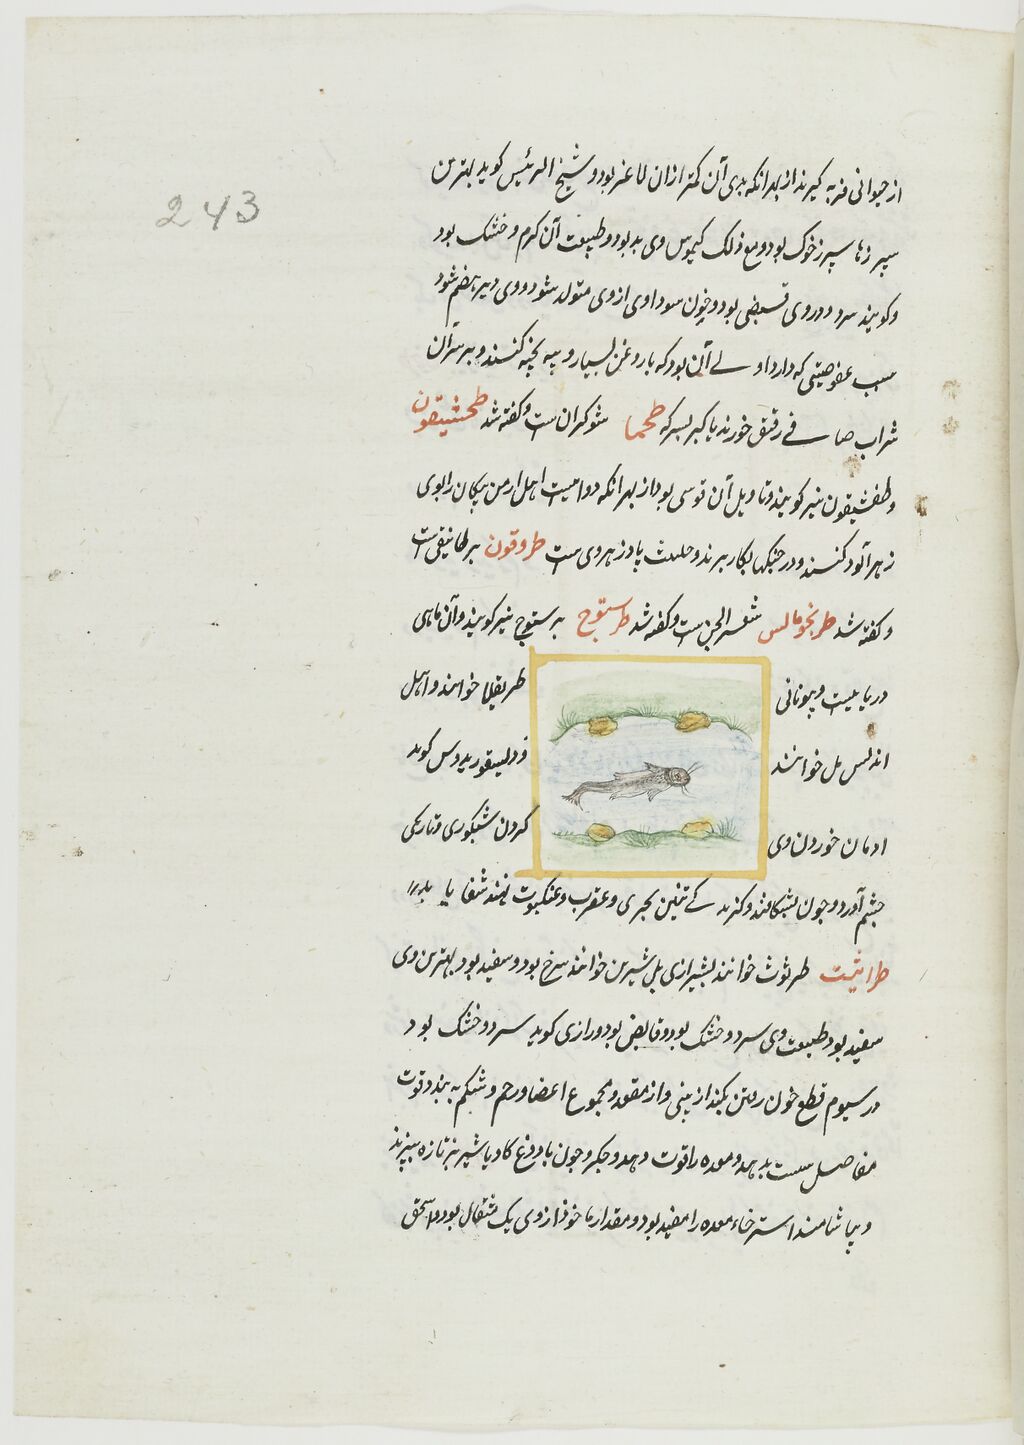 243
از حیوانی فربه گیرند از بهر آنکه بدی آن کمتر از آن لاغر بود و شیخ الرئیس گوید بهترین
سپرزها سپرز خوک بود و مع ذلک کیموس وی بد بود و طبیعت آن گرم و خشک بود
و گویند سرد و در وی قبضی بود و خون سوداوی از وی متولد شود و وی دیر هضم شود
سبب عفوصتی که دارد اولی آن بود که با روغن بسیار و پیه پخته کنند و بر سر آن
شراب صافی رقیق خورند یا کبر بسرکه طحما شوکران ست و گفته شد طحشیقون
و طفشیقون نیز گویند و تاویل آن قوسی بود از بهر آنکه دوائیست اهل ارمن پیکان را بوی
زهرآلود کنند و در جنگها بکار برند و حلیت پادزهر وی ست طروقون برطانیقی ست
و گفته شد طریخومالس شعر الجن ست و گفته شد طرستوج برستوج نیز گویند و آن ماهی
دریائیست و بیونانی طریقلا خوانند و اهل
اندلس مل خوانند و دلیسقوریدوس گوید
ادمان خوردن وی کردن شبکوری و تاریکی
چشم آورد و چون بشکافند و بر کزیدگی تنین بحری و عقرب و عنکبوت نهند شفا یابد
طراثیث طرثوث خوانند بشیرازی بل شیرین خوانند سرخ بود و سفید بود بهترین وی
سفید بود طبیعت وی سرد و خشک بود و قابض بود و رازی گوید سرد و خشک بود
در سیوم قطع خون رفتن بکند از بینی و از مقعد و مجموع اعضا و رحم و شکم به بندد و قوت
مفاصل سست بدهد و معده را قوت دهد و جگر و چون با دوغ گاو یا شیر بز تازه بپزند
و بیاشامند استرخاء معده را مفید بود و مقدار ماخوذ از وی یک مثقال بود و اسحق